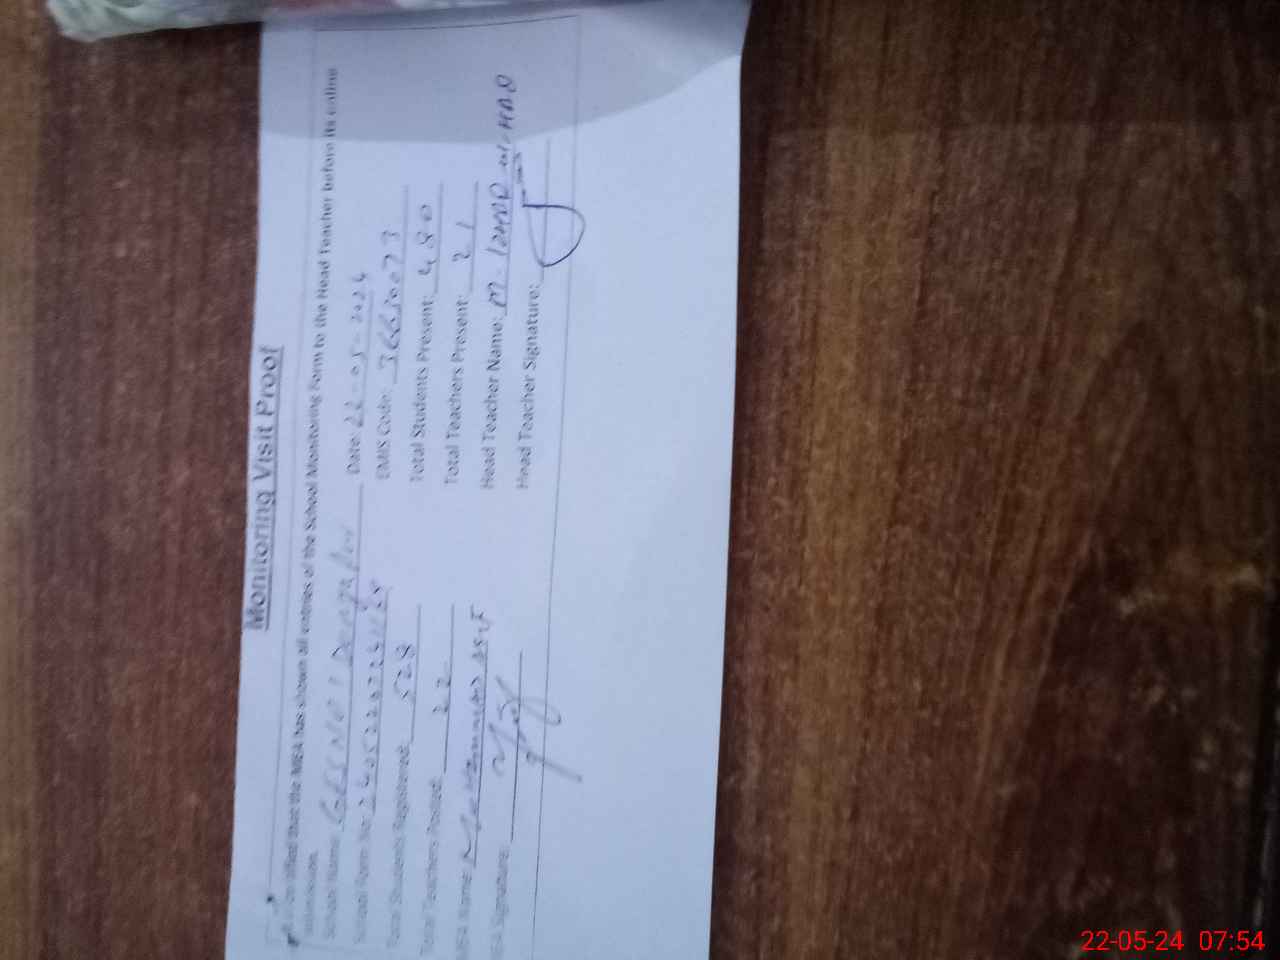 Monitoring Visit Proof
It is certified that the MEA has shown all entries of the School Monitoring Form to the Head Teacher before its online
submission.
School Name: GES NO 1 Date: 22-05-2024
School Form No: EMIS Code:
Total Students Registered: 528 Total Students Present: 480
Total Teachers Posted: 22 Total Teachers Present: 21
MEA Name: Muhammad Asif Head Teacher Name: M-
MEA Signature: Head Teacher Signature:
22-05-24 07:54